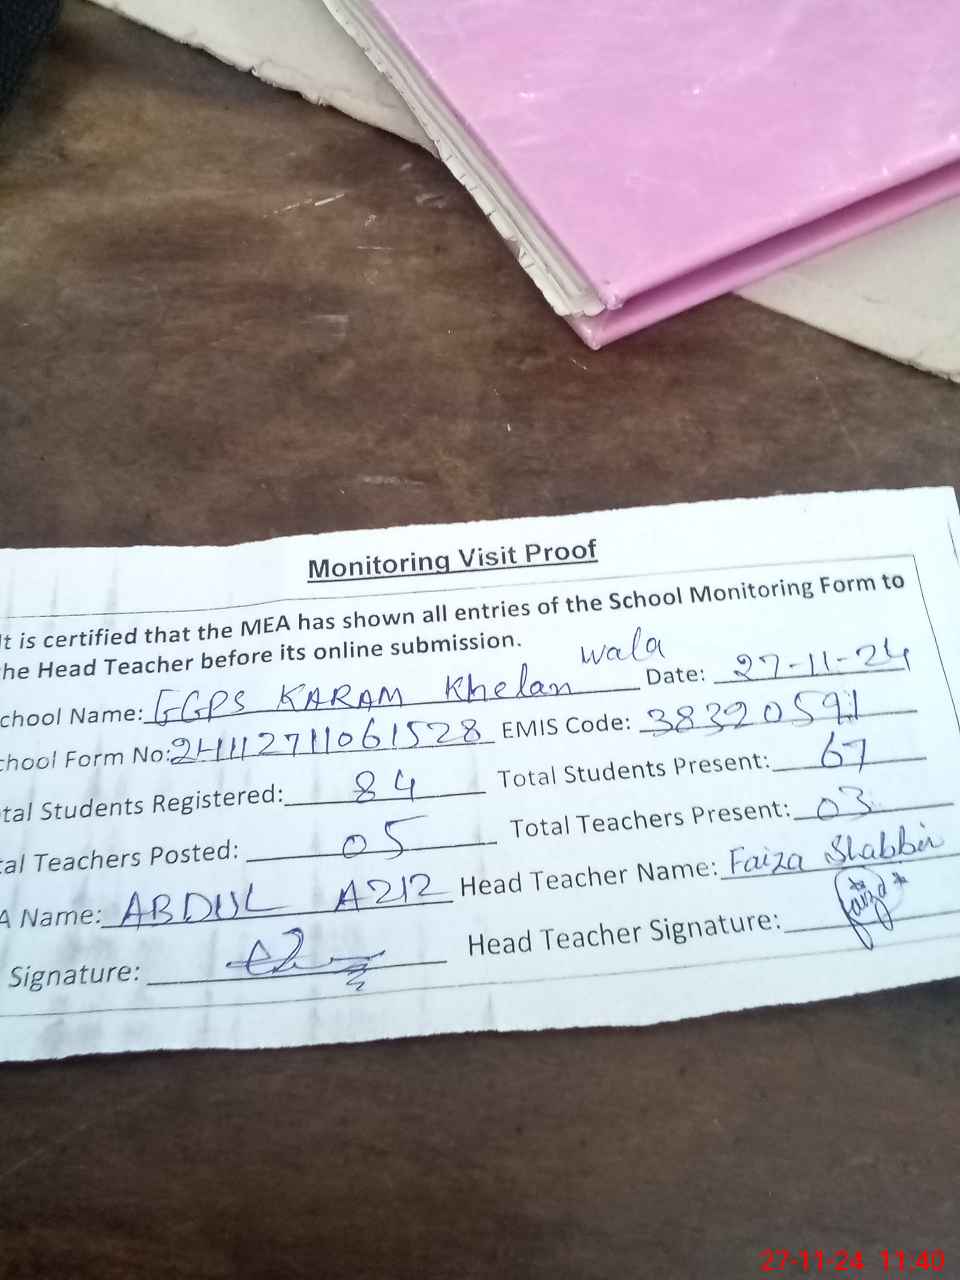 Monitoring Visit Proof
It is certified that the MEA has shown all entries of the School Monitoring Form to
he Head Teacher before its online submission.
chool Name: GGPS KARAM Khelan wala Date: 27-11-24
chool Form No: 241112711061528 EMIS Code: 38320591
tal Students Registered: 84 Total Students Present: 67
al Teachers Posted: 05 Total Teachers Present: 03
A Name: ABDUL AZIZ Head Teacher Name: Faiza Shabbir
Signature: Head Teacher Signature: faiza
27-11-24 11:40